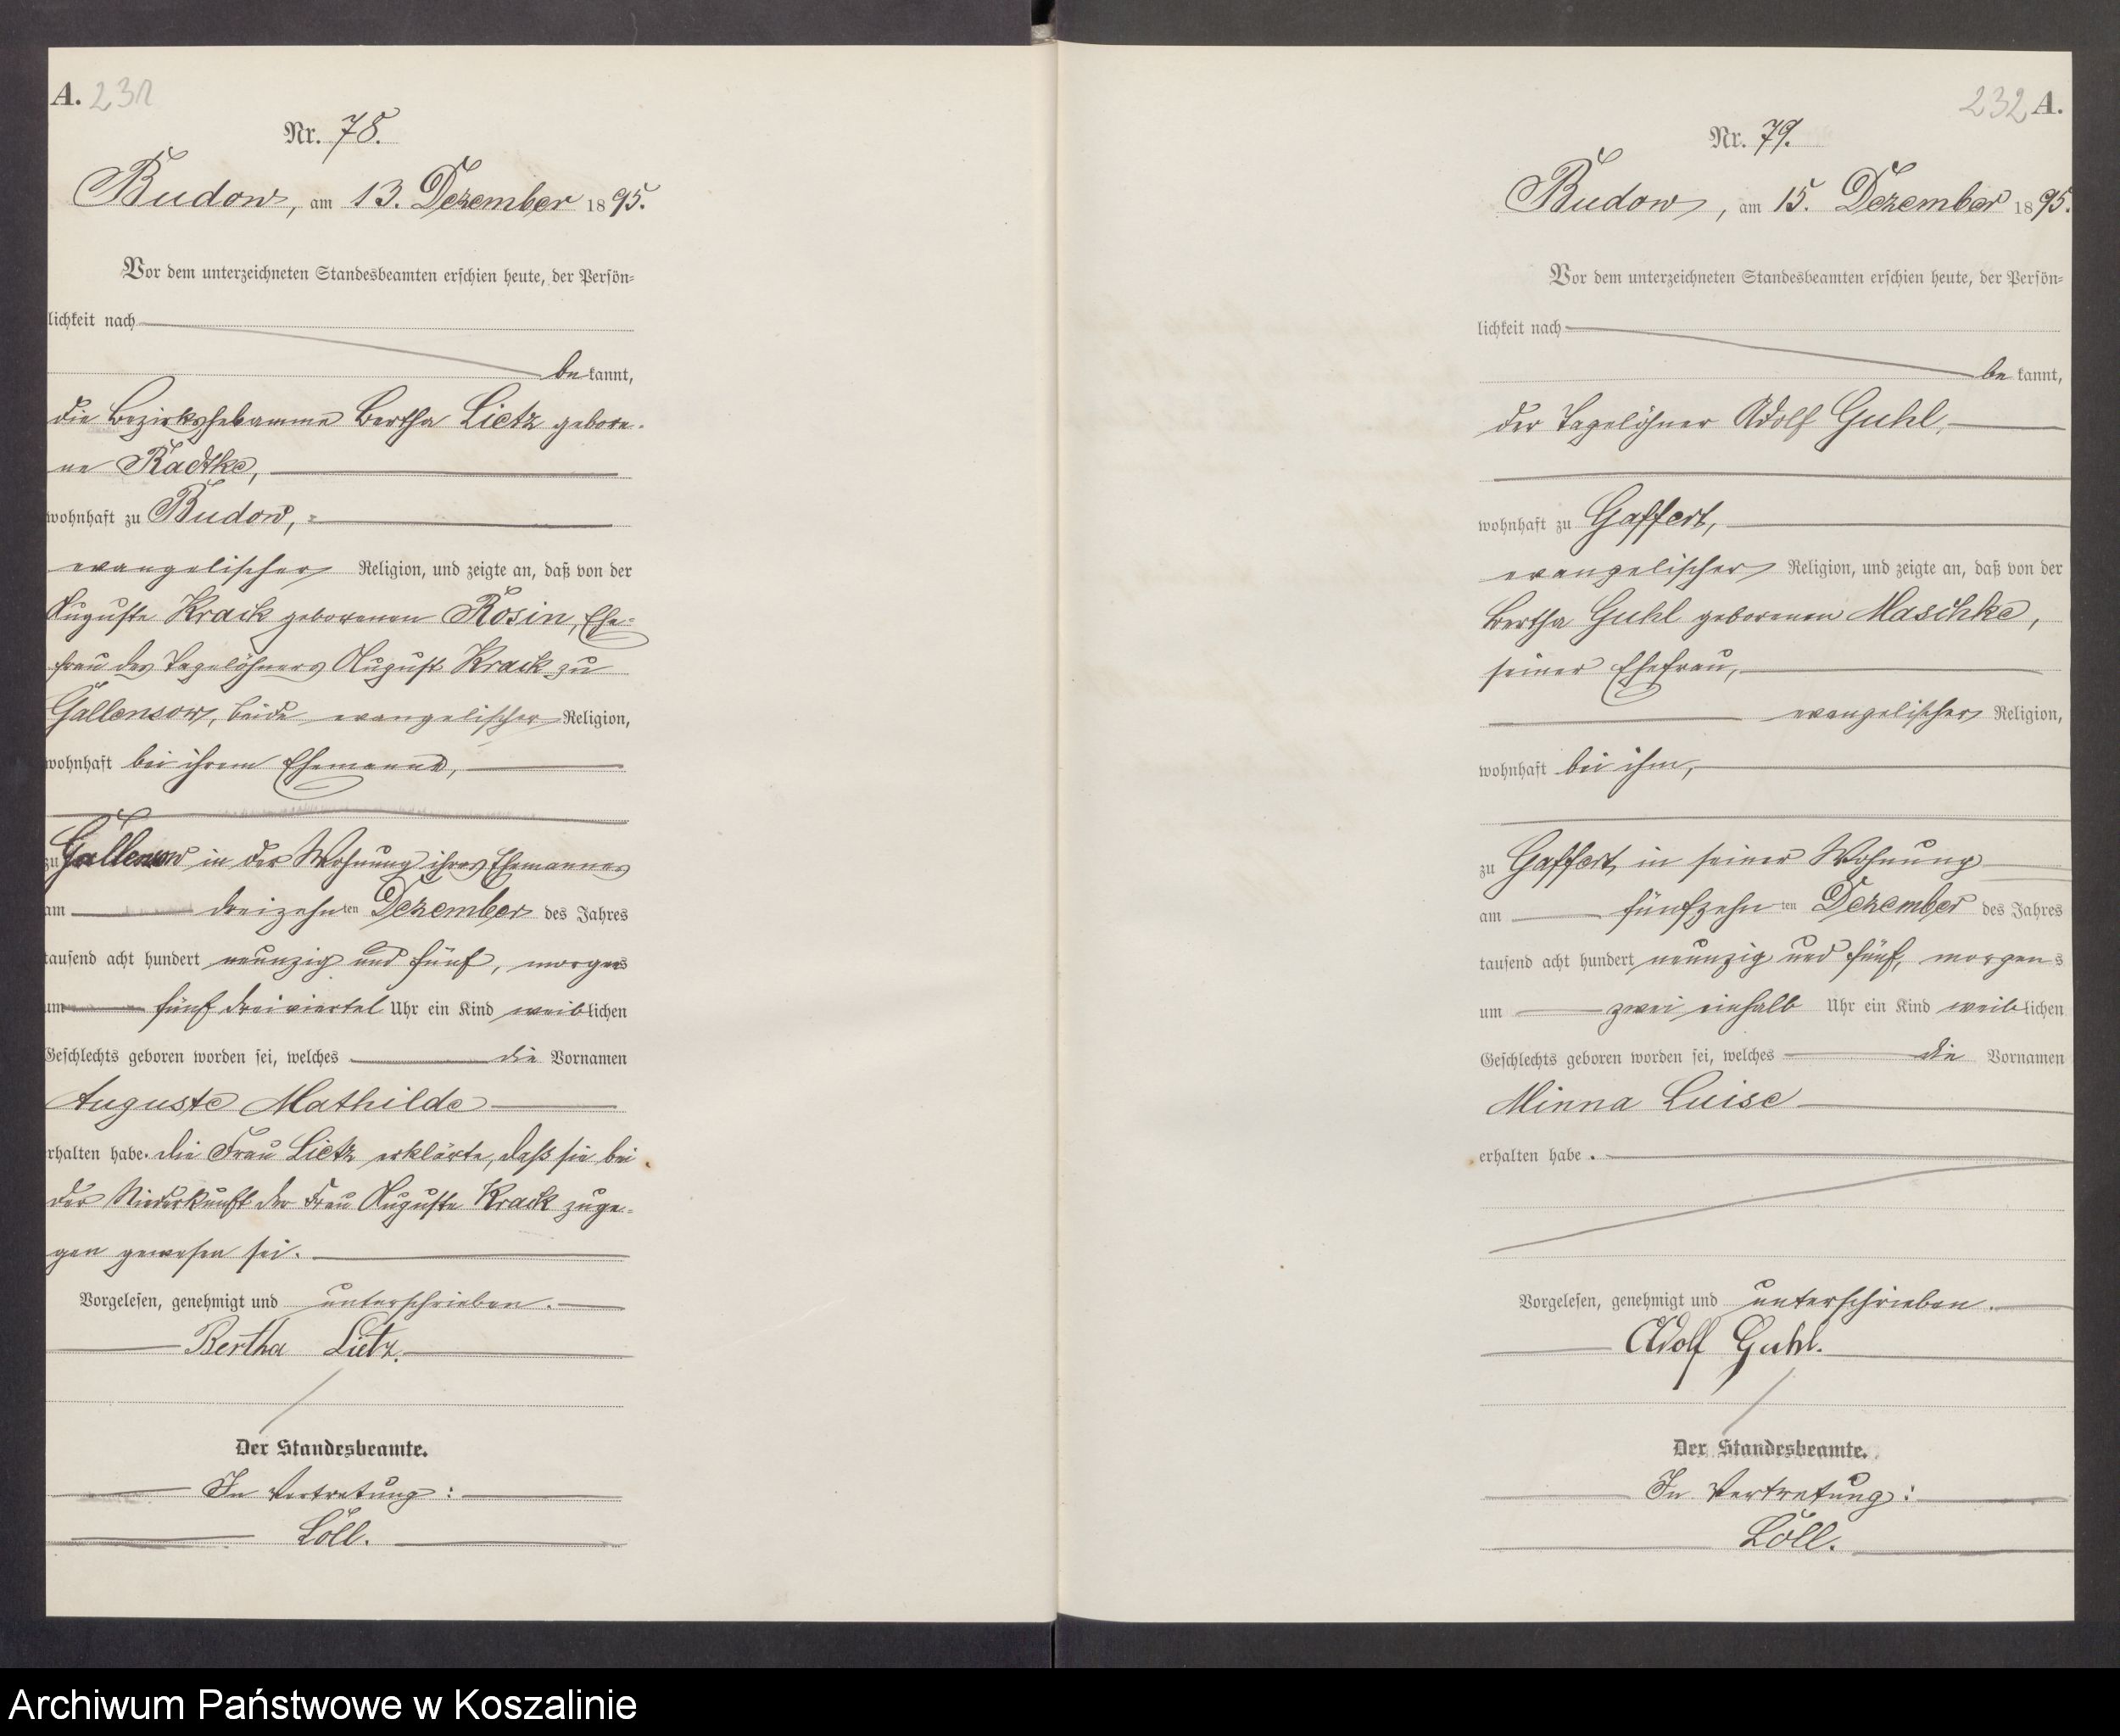 A. 231
Nr. 78.
Budow, am 13. Dezember 1895.
Vor dem unterzeichneten Standesbeamten erschien heute, der Persön-
lichkeit nach
be kannt,
die Bezirkshebamme Bertha Lietz gebore-
ne Radtke,
wohnhaft zu Budow,
evangelischer Religion, und zeigte an, daß von der
Auguste Krack geborenen Rosin, Ehe-
frau des Tagelöhners August Krack zu
Gallensow, beide evangelischer Religion,
wohnhaft bei ihrem Ehemanne,
zu Gallensow in der Wohnung ihres Ehemannes
am dreizehnten Dezember des Jahres
tausend acht hundert neunzig und fünf, morgens
um fünf dreiviertel Uhr ein Kind weiblichen
Geschlechts geboren worden sei, welches die Vornamen
Auguste Mathilde
erhalten habe. Die Frau Lietz erklärte, daß sie bei
der Niederkunft der Frau Auguste Krack zuge-
gen gewesen sei.
Vorgelesen, genehmigt und unterschrieben.
Bertha Lietz.
Der Standesbeamte.
In Vertretung:
Löll.
232 A.
Nr. 79.
Budow, am 15. Dezember 1895.
Vor dem unterzeichneten Standesbeamten erschien heute, der Persön-
lichkeit nach
be kannt,
der Tagelöhner Adolf Guhl,
wohnhaft zu Gaffert,
evangelischer Religion, und zeigte an, daß von der
Bertha Guhl geborenen Maschke,
seiner Ehefrau,
evangelischer Religion,
wohnhaft bei ihm,
zu Gaffert, in seiner Wohnung
am fünfzehnten Dezember des Jahres
tausend acht hundert neunzig und fünf, morgens
um zwei einhalb Uhr ein Kind weiblichen
Geschlechts geboren worden sei, welches die Vornamen
Minna Luise
erhalten habe.
Vorgelesen, genehmigt und unterschrieben.
Adolf Guhl.
Der Standesbeamte.
In Vertretung:
Löll.
Archiwum Państwowe w Koszalinie